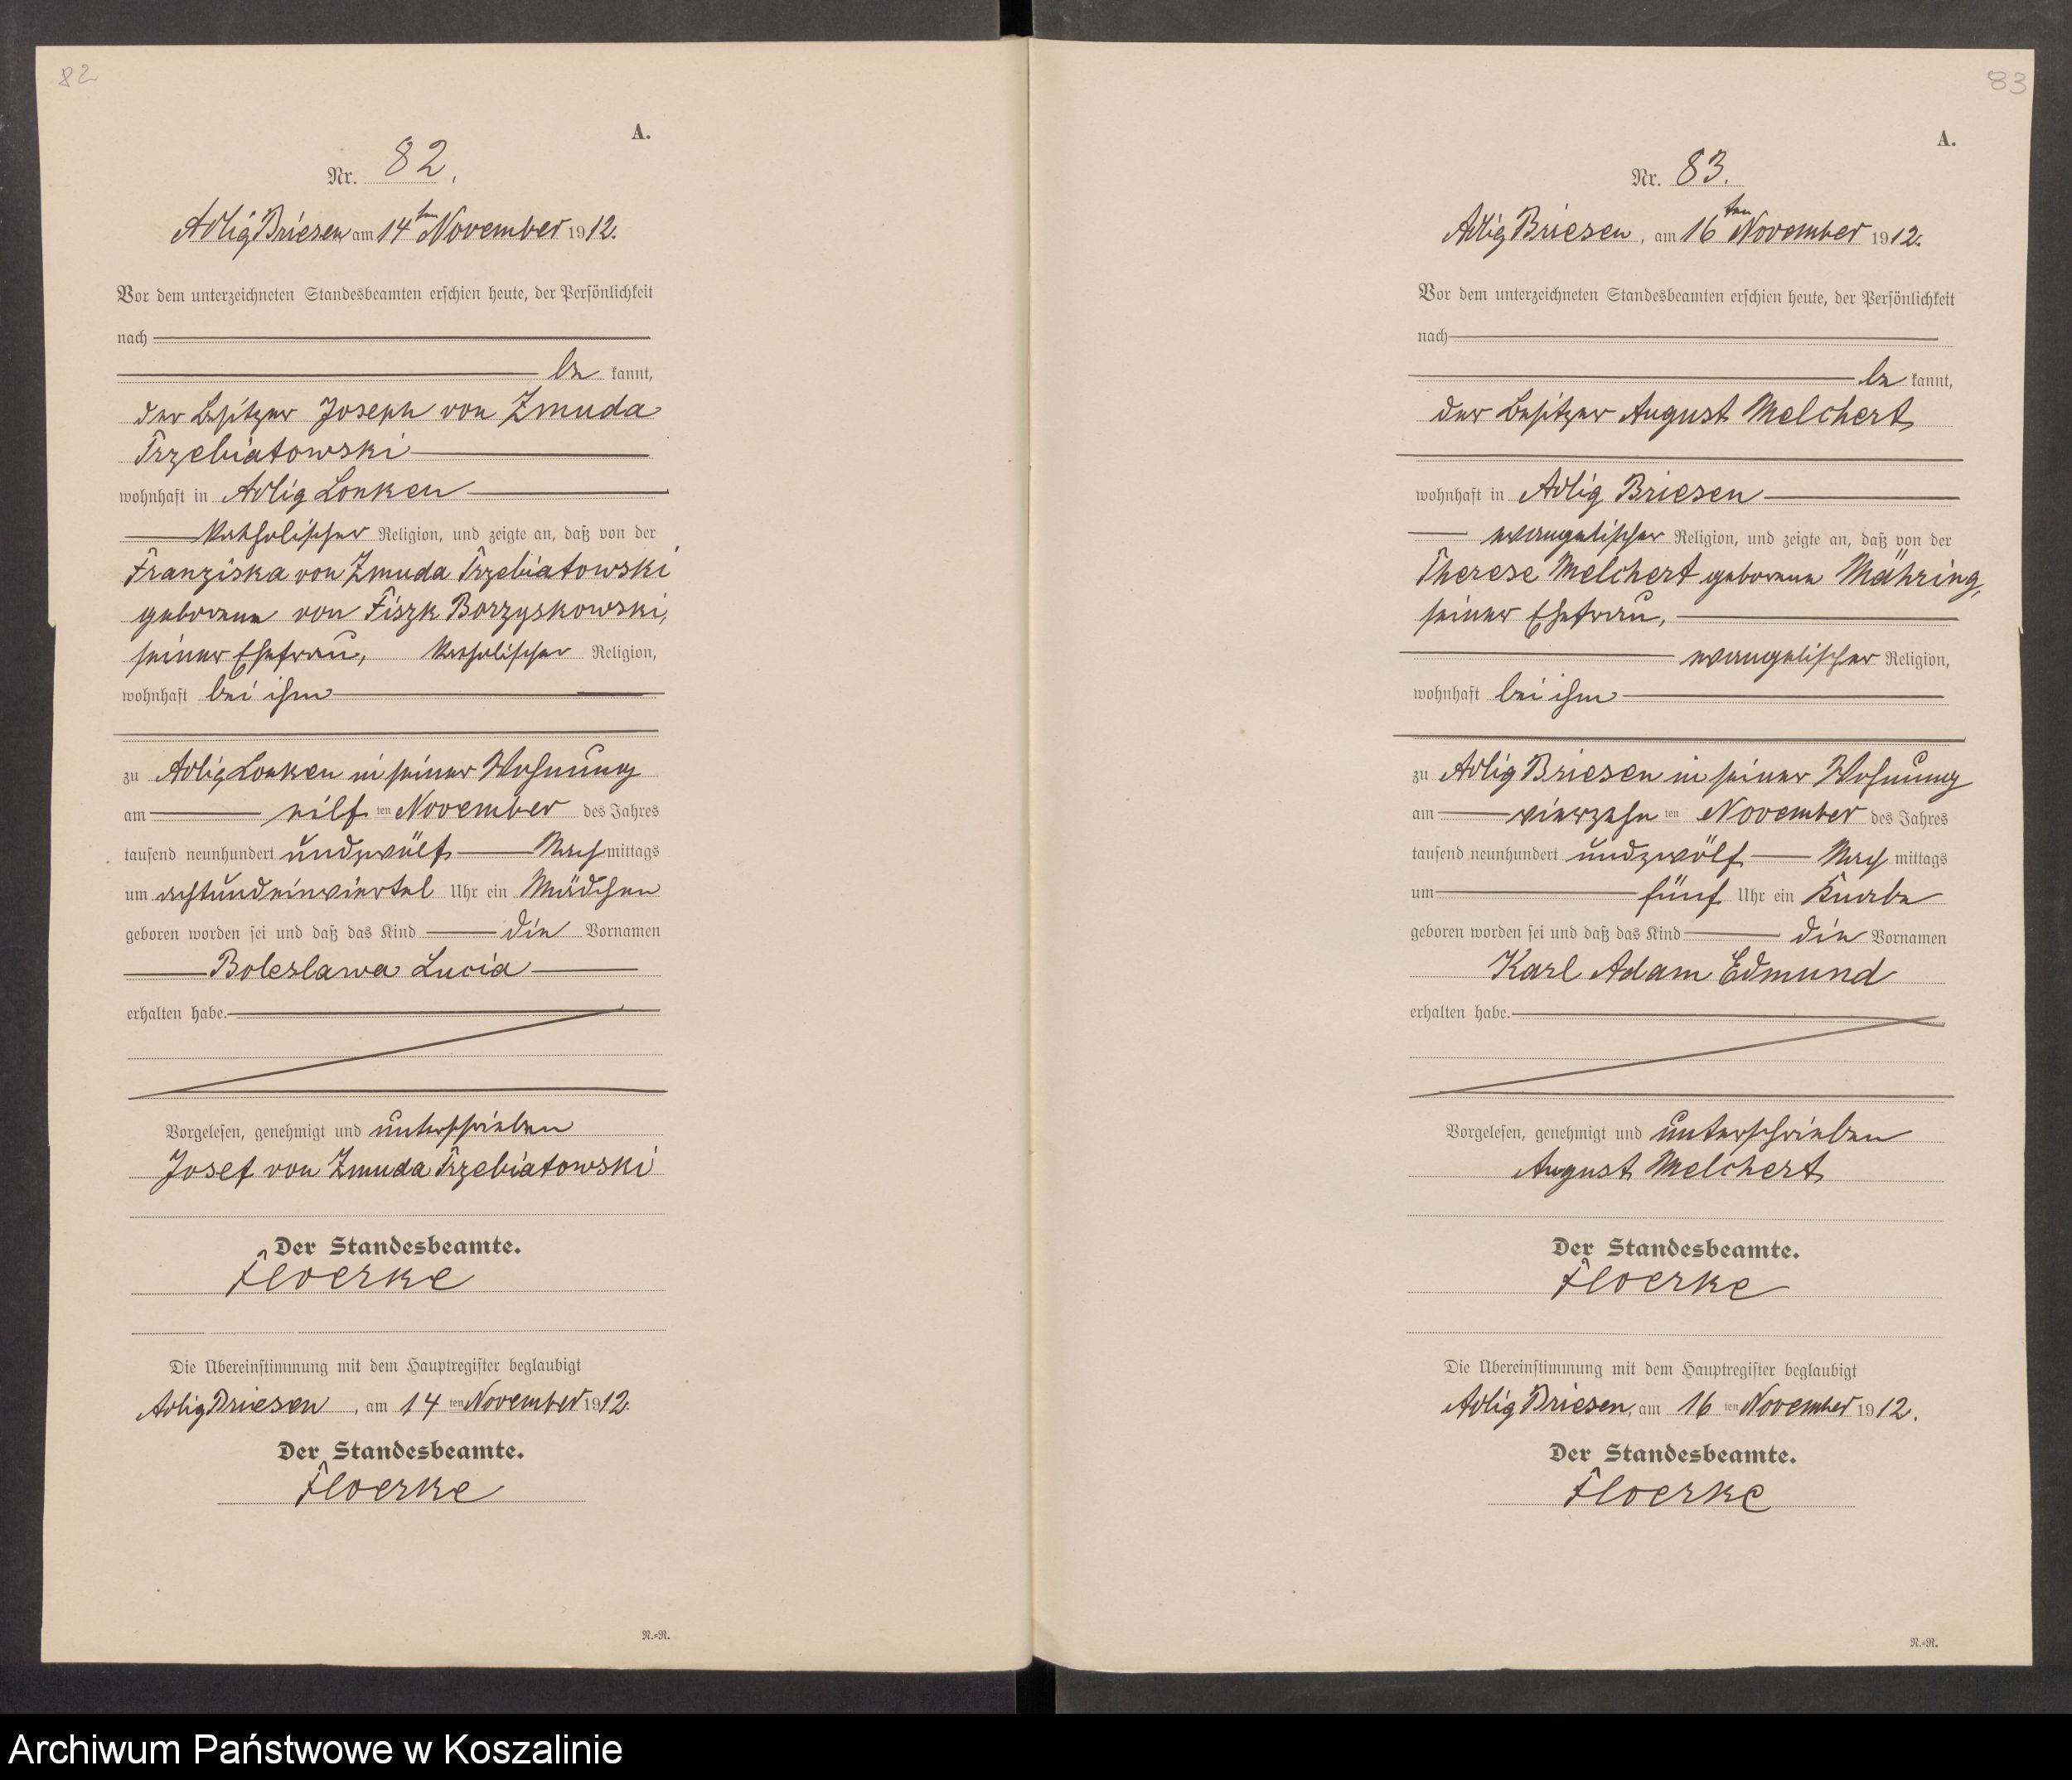 82
A.
Nr. 82.
Adlig Briesen am 14ten November 1912.
Vor dem unterzeichneten Standesbeamten erschien heute, der Persönlichkeit
nach
be kannt,
der Besitzer Joseph von Zmuda
Trzebiatowski
wohnhaft in Adlig Lonken
katholischer Religion, und zeigte an, daß von der
Franziska von Zmuda Trzebiatowski
geborene von Fiszk Borzyskowski,
seiner Ehefrau, katholischer Religion,
wohnhaft bei ihm
zu Adlig Lonken in seiner Wohnung
am eilf ten November des Jahres
tausend neunhundert undzwölf Nach mittags
um achtundeinviertel Uhr ein Mädchen
geboren worden sei und daß das Kind die Vornamen
Boleslawa Lucia
erhalten habe.
Vorgelesen, genehmigt und unterschrieben
Josef von Zmuda Trzebiatowski
Der Standesbeamte.
Floerke
Die Übereinstimmung mit dem Hauptregister beglaubigt
Adlig Briesen, am 14 ten November 1912.
Der Standesbeamte.
Floerke
R.-R.
83
A.
Nr. 83.
Adlig Briesen, am 16ten November 1912.
Vor dem unterzeichneten Standesbeamten erschien heute, der Persönlichkeit
nach
be kannt,
der Besitzer August Melchert
wohnhaft in Adlig Briesen
evangelischer Religion, und zeigte an, daß von der
Therese Melchert geborene Mähring,
seiner Ehefrau,
evangelischer Religion,
wohnhaft bei ihm
zu Adlig Briesen in seiner Wohnung
am vierzehn ten November des Jahres
tausend neunhundert undzwölf Nach mittags
um fünf Uhr ein Knabe
geboren worden sei und daß das Kind die Vornamen
Karl Adam Edmund
erhalten habe.
Vorgelesen, genehmigt und unterschrieben
August Melchert
Der Standesbeamte.
Floerke
Die Übereinstimmung mit dem Hauptregister beglaubigt
Adlig Briesen, am 16 ten November 1912.
Der Standesbeamte.
Floerke
R.-R.
Archiwum Państwowe w Koszalinie